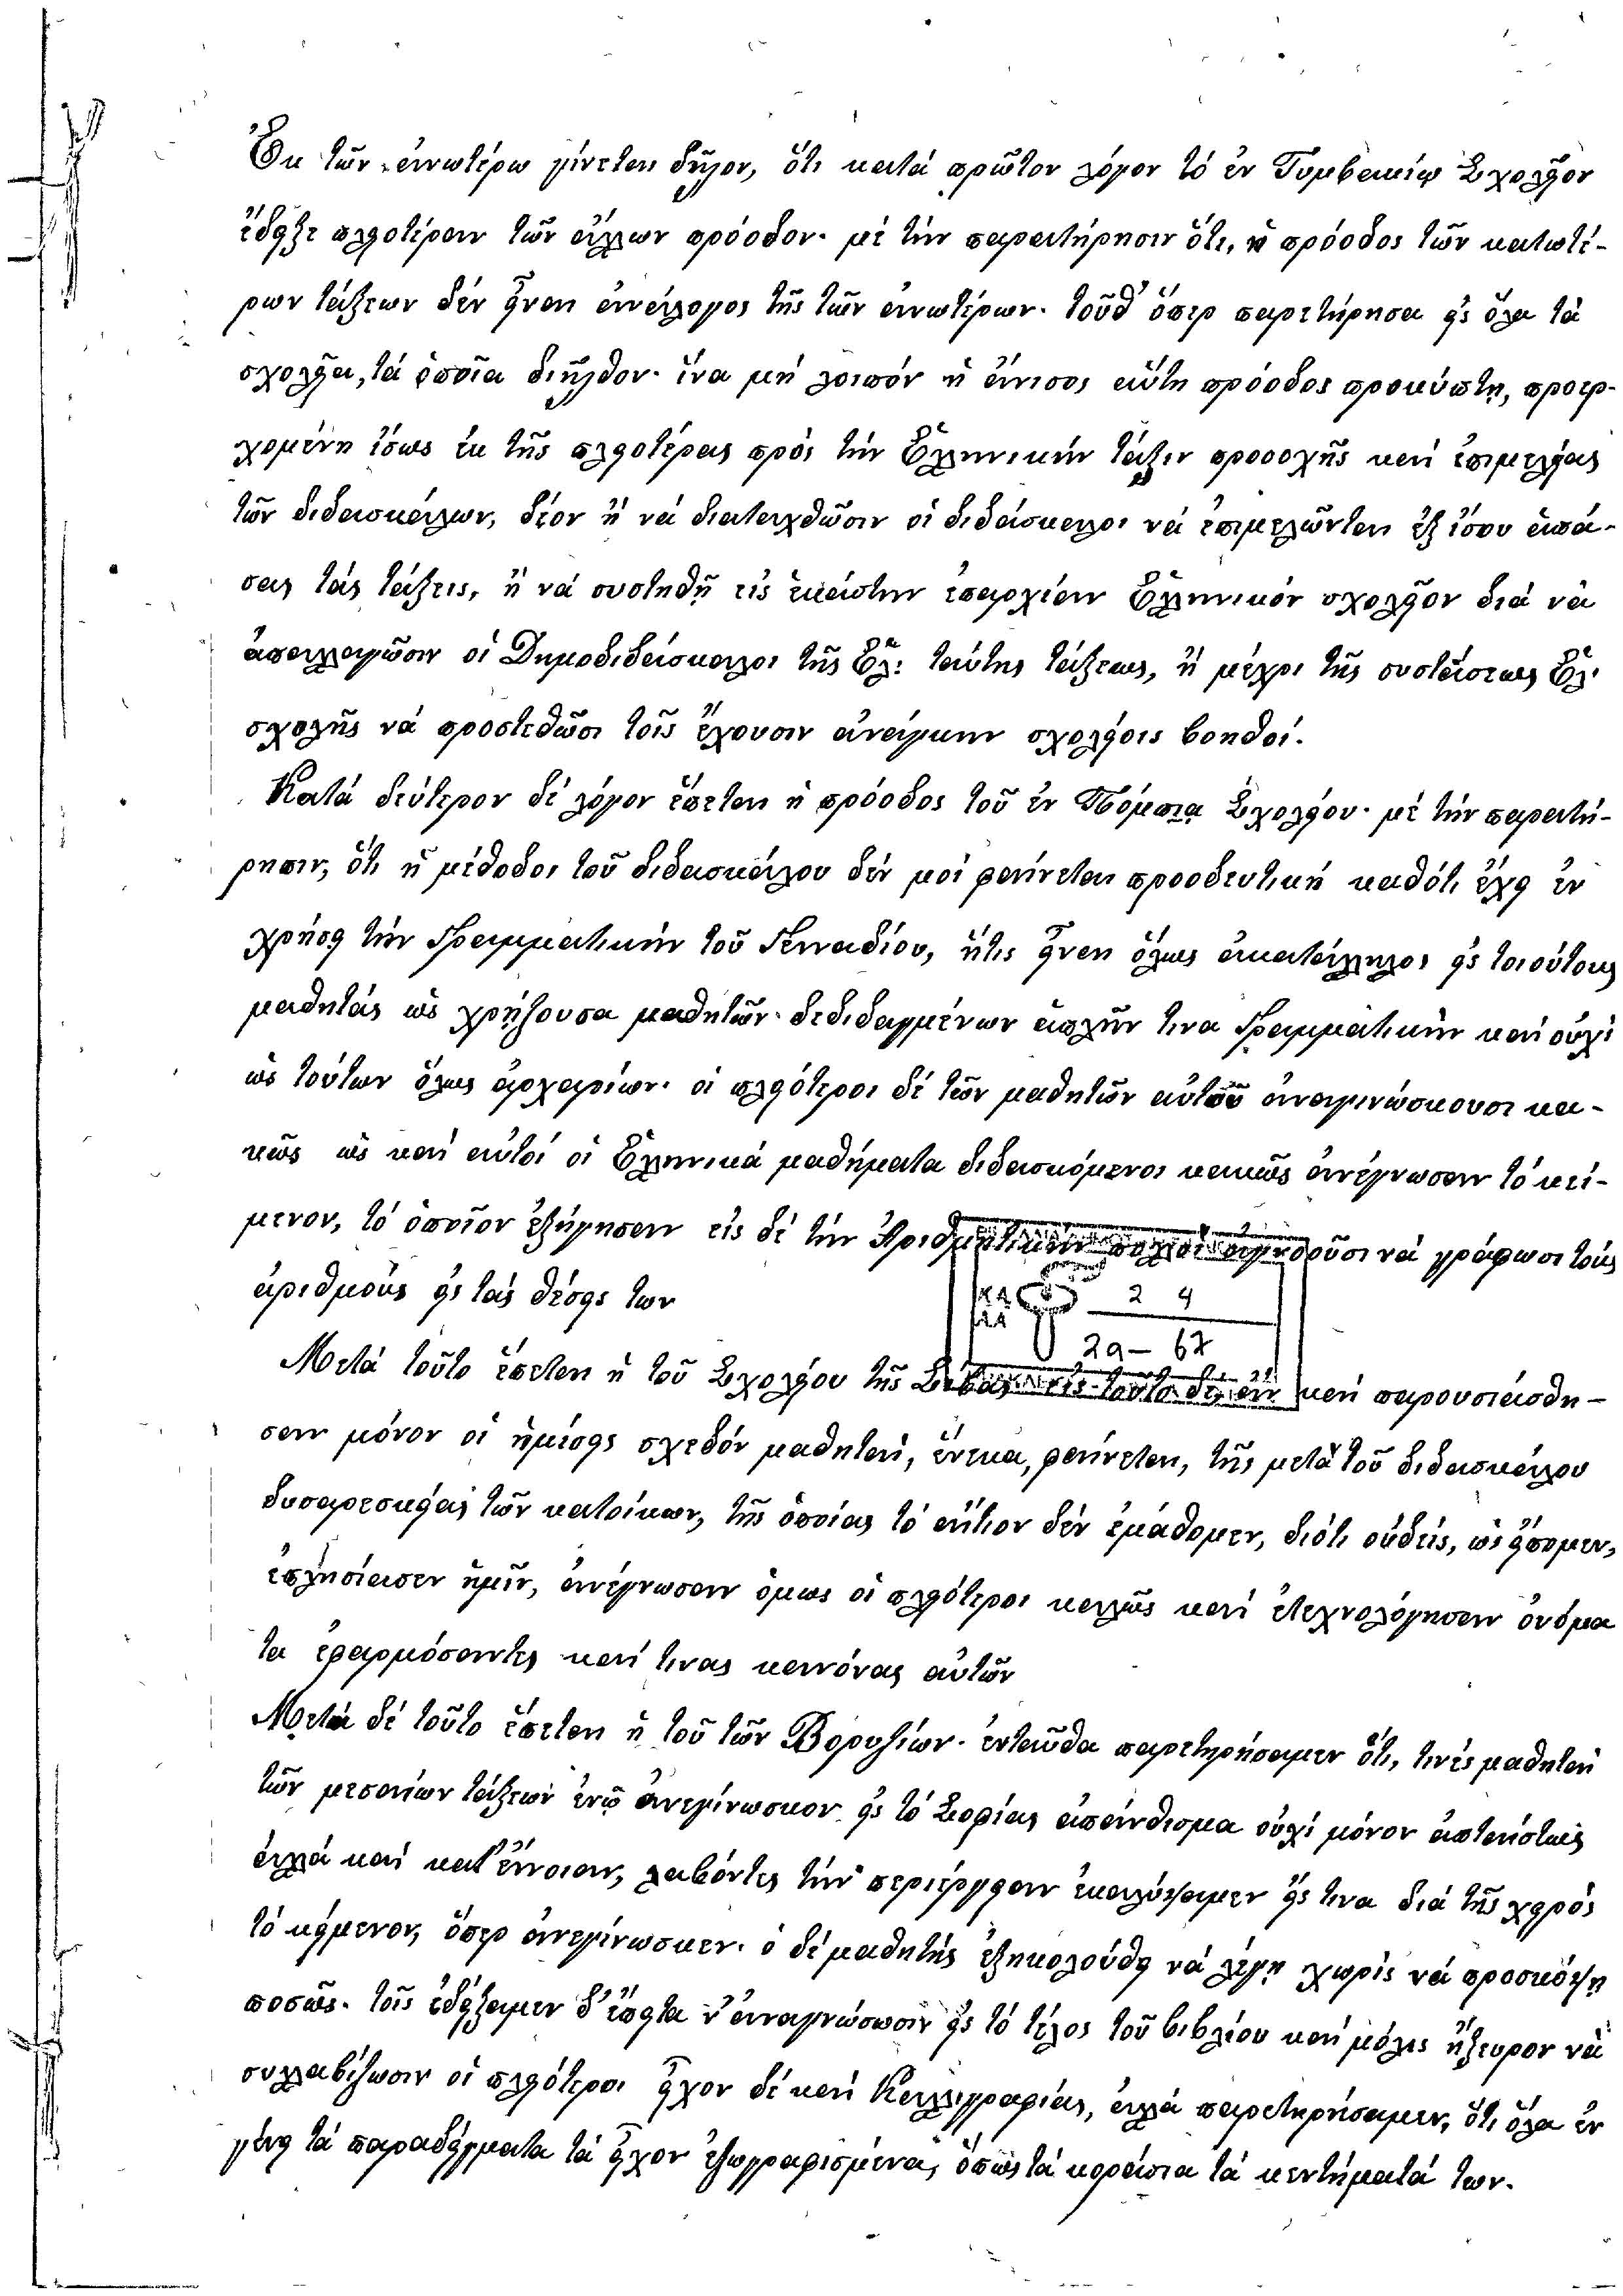 Ἐκ τῶν ἀνωτέρω γίνεται δῆλον, ὅτι κατά πρῶτον λόγον τό ἐν Τυμβακίῳ Σχολεῖον
ἔδειξε πλειοτέραν τῶν ἄλλων πρόοδον· μέ τήν παρατήρησιν ὅτι, ἡ πρόοδος τῶν κατωτέ-
ρων τάξεων δέν εἶναι ἀνάλογος τῆς τῶν ἀνωτέρων· τοῦθ' ὅπερ παρετήρησα εἰς ὅλα τά
σχολεῖα, τά ὁποῖα διῆλθον· ἵνα μή λοιπόν ἡ ἄνισος αὕτη πρόοδος προκύπτῃ, προερ-
χομένη ἴσως ἐκ τῆς πλειοτέρας πρός τήν Ἑλληνικήν τάξιν προσοχῆς καί ἐπιμελείας
τῶν διδασκάλων, δέον ἤ νά διαταχθῶσιν οἱ διδάσκαλοι νά ἐπιμελῶνται ἐξ ἴσου ἁπά-
σας τάς τάξεις, ἤ νά συστηθῇ εἰς ἑκάστην ἐπαρχίαν Ἑλληνικόν σχολεῖον διά νά
ἀπαλλαγῶσιν οἱ Δημοδιδάσκαλοι τῆς Ἑλ: ταύτης τάξεως, ἤ μέχρι τῆς συστάσεως Ἑλ.
σχολῆς νά προστεθῶσι τοῖς ἔχουσιν ἀνάγκην σχολείοις βοηθοί.
Κατά δεύτερον δέ λόγον ἕπεται ἡ πρόοδος τοῦ ἐν Πόμπια Σχολείου· μέ τήν παρατή-
ρησιν, ὅτι ἡ μέθοδος τοῦ διδασκάλου δέν μοί φαίνεται προοδευτική καθότι ἔχει ἐν
χρήσει τήν Γραμματικήν τοῦ Γενναδίου, ἥτις εἶναι ὅλως ἀκατάλληλος εἰς τοιούτους
μαθητάς ὡς χρῄζουσα μαθητῶν δεδιδαγμένων ἁπλῆν τινα Γραμματικήν καί οὐχί
ὡς τούτων ὅλως ἀρχαρίων· οἱ πλειότεροι δέ τῶν μαθητῶν αὐτοῦ ἀναγινώσκουσι κα-
κῶς ὡς καί αὐτοί οἱ Ἑλληνικά μαθήματα διδασκόμενοι κακῶς ἀνέγνωσαν τό κεί-
μενον, τό ὁποῖον ἐξήγησαν εἰς δέ τήν Ἀριθμητικήν πολλοί ἀγνοοῦσι νά γράφωσι τούς
ἀριθμούς εἰς τάς θέσεις των
ΚΔ
ΔΔ
2 4
2α – 67
Μετά τοῦτο ἕπεται ἡ τοῦ Σχολείου τῆς Σίβας εἰς τοῦτο δέ, ἄν καί παρουσιάσθη-
σαν μόνον οἱ ἡμίσεις σχεδόν μαθηταί, ἕνεκα, φαίνεται, τῆς μετά τοῦ διδασκάλου
δυσαρεσκείας τῶν κατοίκων, τῆς ὁποίας τό αἴτιον δέν ἐμάθομεν, διότι οὐδείς, ὡς εἴπομεν,
ἐπλησίασεν ἡμῖν, ἀνέγνωσαν ὅμως οἱ πλειότεροι καλλῶς καί ἐτεχνολόγησαν ὀνόμα
τα ἐφαρμόσαντες καί τινας κανόνας αὐτῶν
Μετά δέ τοῦτο ἕπεται ἡ τοῦ τῶν Βορυζίων· ἐνταῦθα παρετηρήσαμεν ὅτι, τινές μαθηταί
τῶν μεσαίων τάξεων ἐνῷ ἀνεγίνωσκον εἰς τό Σοφίας ἀπάνθισμα οὐχί μόνον ἀπταίστως
ἀλλά καί κατ' ἔννοιαν, λαβόντες τήν περιέργειαν ἐκαλύψαμεν εἴς τινα διά τῆς χειρός
τό κείμενον, ὅπερ ἀνεγίνωσκεν· ὁ δέ μαθητής ἐξηκολούθει νά λέγῃ χωρίς νά προσκόψῃ
ποσῶς· τοῖς ἐδείξαμεν δ' ἔπειτα ν' ἀναγνώσωσιν εἰς τό τέλος τοῦ βιβλίου καί μόλις ἤξευρον νά
συλλαβίζωσιν οἱ πλειότεροι εἶχον δέ καί Καλλιγραφίας, ἀλλά παρετηρήσαμεν, ὅτι ὅλα ἐν
γένει τά παραδείγματα τά εἶχον ἐζωγραφισμένα, ὅπως τά κοράσια τά κεντήματά των.